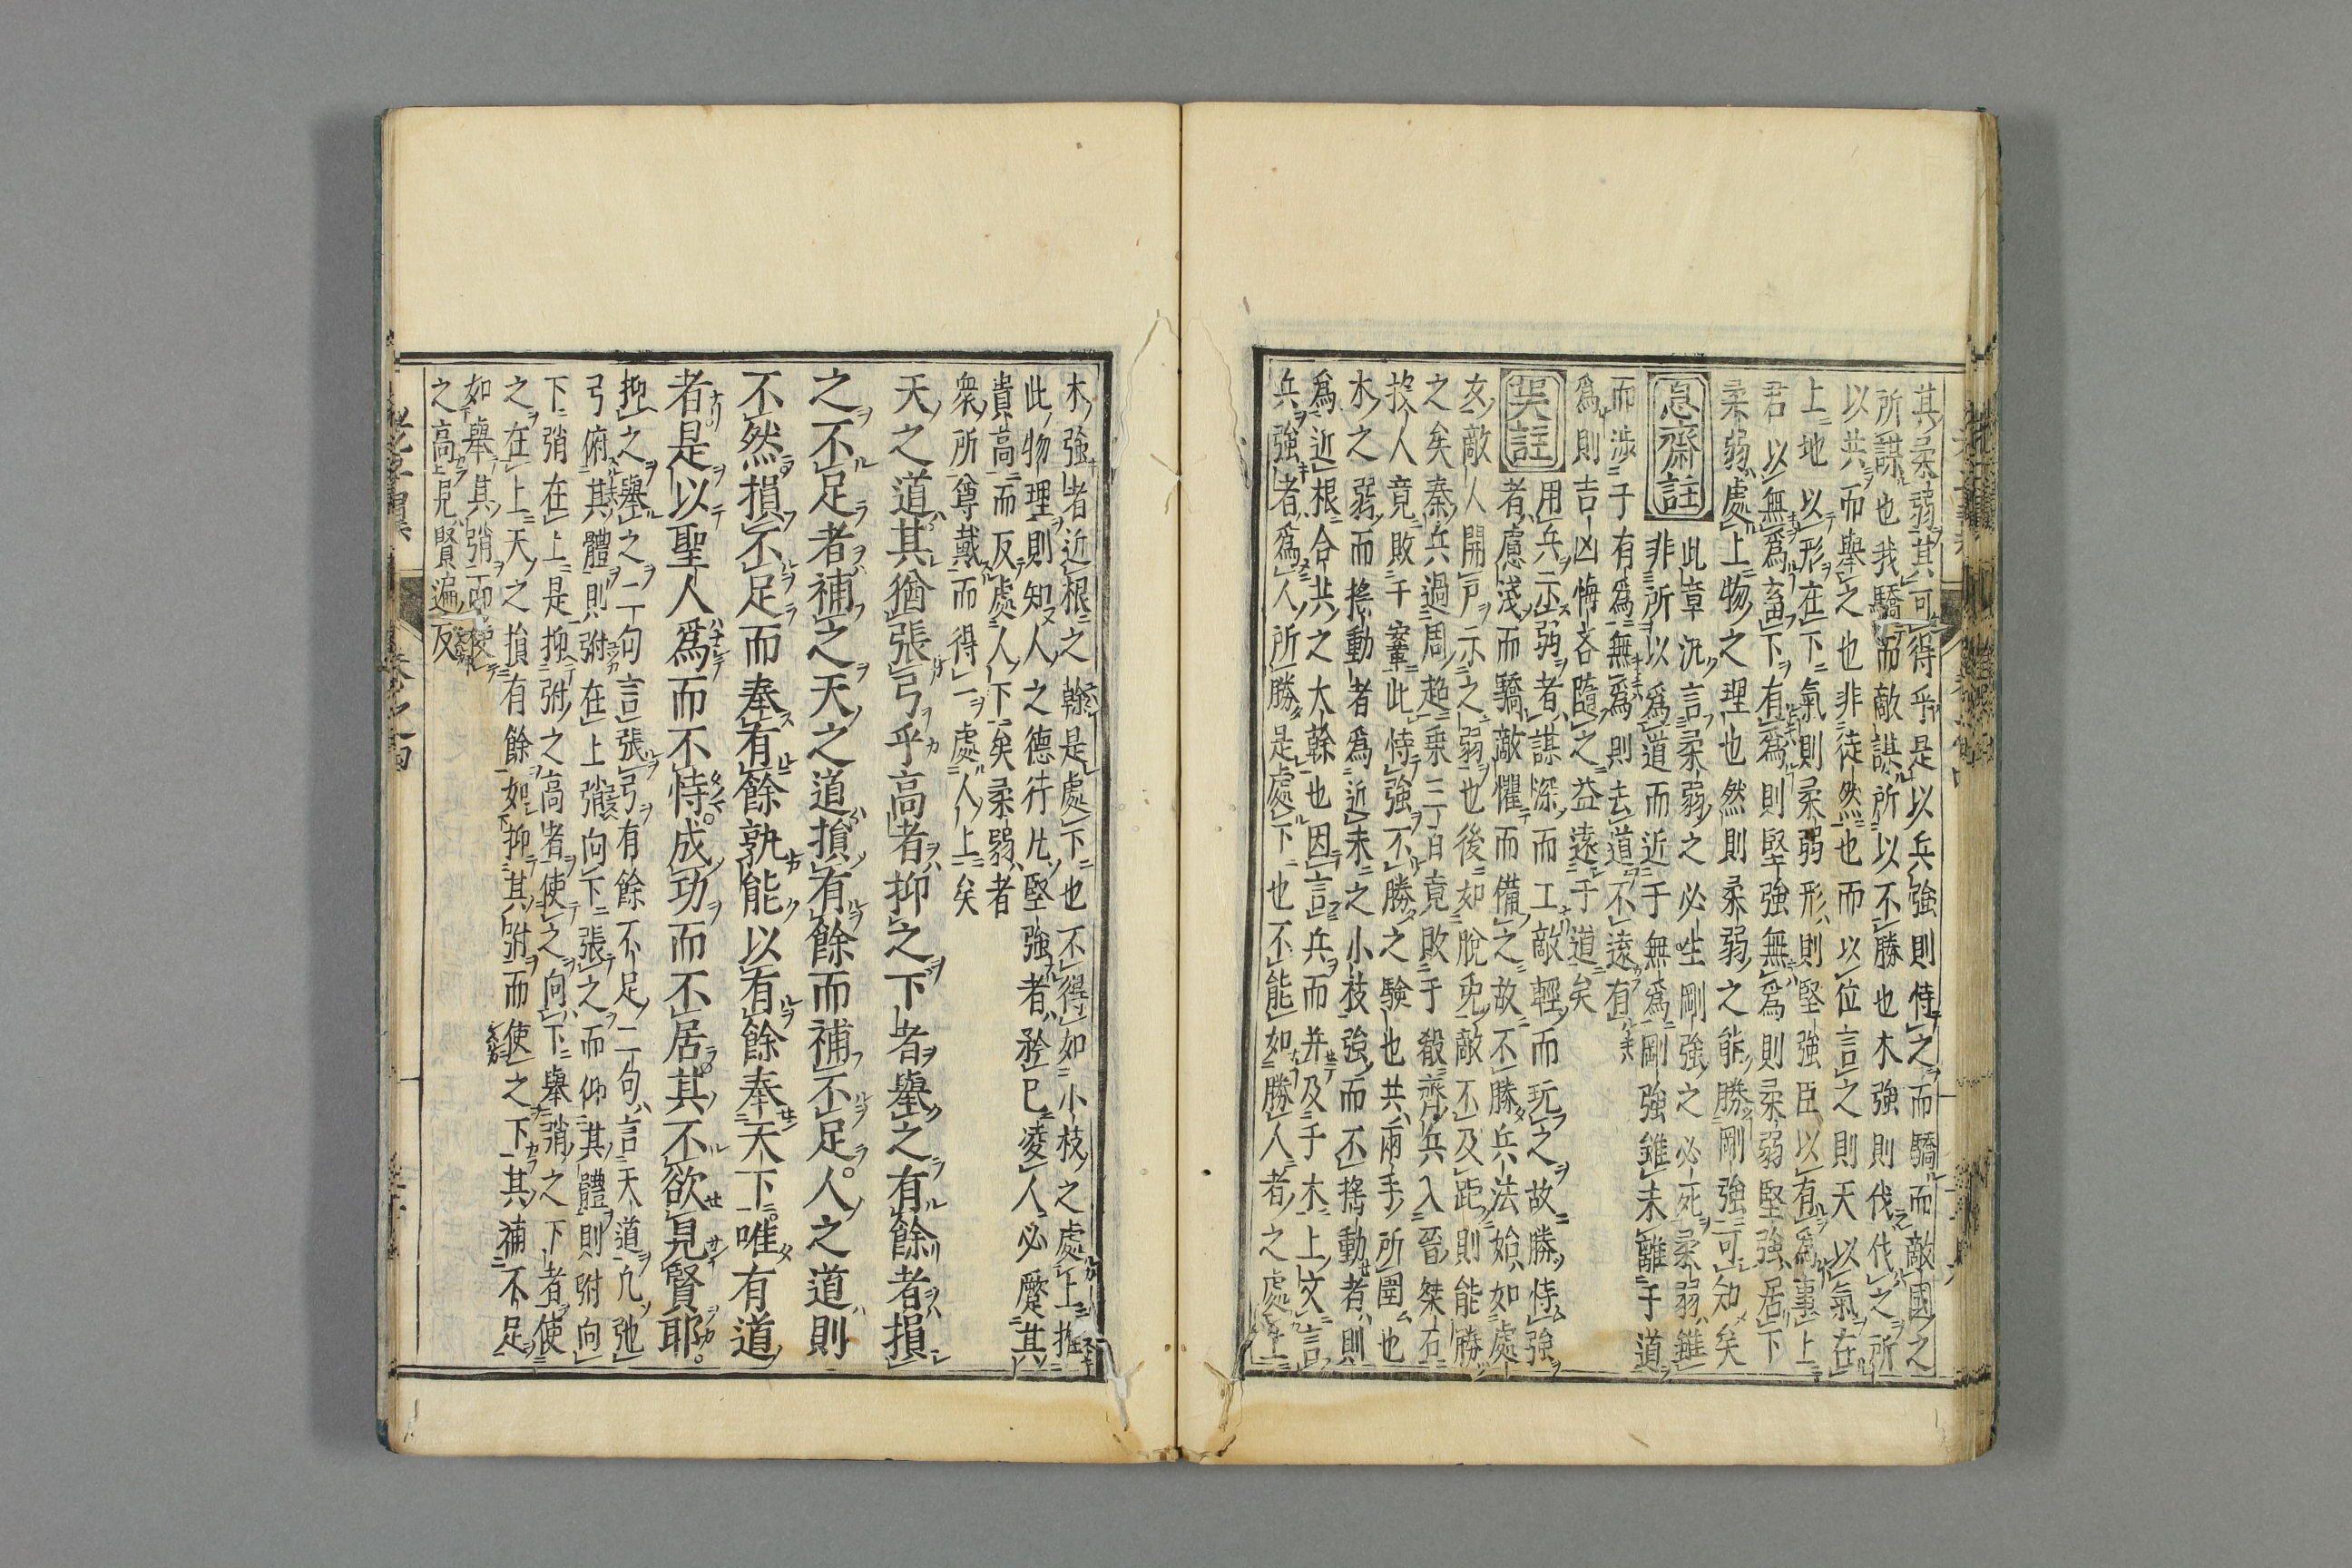 其柔弱其可得乎是以兵強則恃之而驕而敵國之
所謀也我驕而敵謀所以不勝也木強則伐伐之所
以共而舉之也非徒然也而以位言之則天以氣在
上地以形在下氣則柔弱形則堅強臣以有爲事上
君以無爲畜下有爲則堅強無爲則柔弱堅強居下
柔弱處上物之理也然則柔弱之能勝剛強可知矣
息齋註
此章況言柔弱之必生剛強之必死柔弱雖
非所以爲道而近于無爲剛強雖未離于道
而涉于有爲無爲則去道不遠有
爲則吉凶悔吝隨之益遠于道矣
吳註
用兵示弱者謀深而工敵輕而玩之故勝恃強
者慮淺而驕敵懼而備之故不勝兵法始如處
女敵人開戸示之弱也後如脫兎敵不及距則能勝
之矣秦兵過周超乗三百竟敗于殽齊兵入晉桀石
投人竟敗于鞌此恃強不勝之験也共兩手所圍也
木之弱而搖動者爲近末之小枝強而不搖動者則
爲近根合共之大榦也因言兵而并及于木上文言
兵強者爲人所勝是處下也不能如勝人者之處上
木強者近根之榦是處下也不得如小枝之處上推
此物理則知人之德行凡堅強者矜已凌人必蹷其
貴高而反處人下矣柔弱者
衆所尊戴而得一處人上矣
天之道其猶張弓乎高者抑之下者舉之有餘者損
之不足者補之天之道損有餘而補不足人之道則
不然損不足而奉有餘孰能以有餘奉天下唯有道
者是以聖人爲而不恃成功而不居其不欲見賢耶
抑之舉之二句言張弓有餘不足二句言天道凡弛
弓俯其體則弣在上弰向下張之而仰其體則弣向
下弰在上是抑弣之高者使之向下舉弰之下者使
之在上天之損有餘如抑其弣而使之下其補不足
如舉其弰而使
之高見賢遍反
老子翼
卷之四